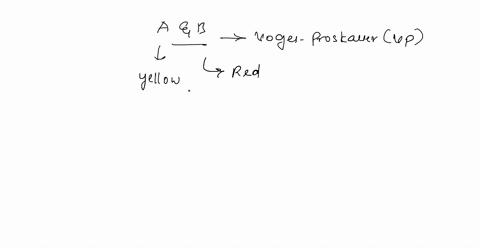 A & B → Voges-Proskauer (Vp)
yellow
Red